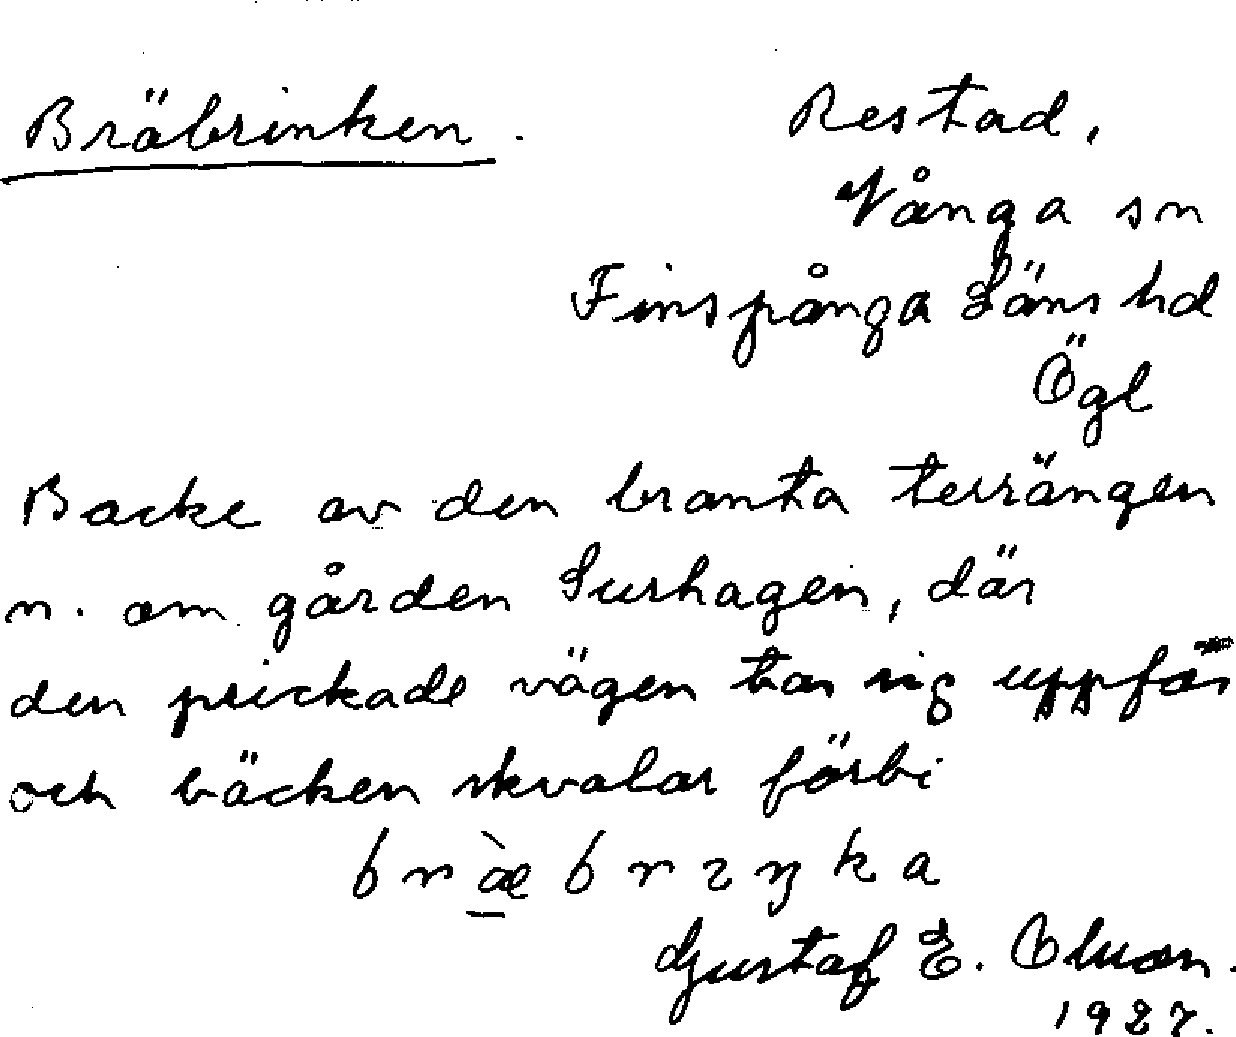 Bräbrinken. Restad,
Vånga sn
Finspånga Läns hd
Ögl
Backe av den branta terrängen
n. om gården Surhagen, där
den prickade vägen tar sig uppför
och bäcken skvalar förbi
bræ̀brɪŋka
Gustaf E. Olsson.
1927.